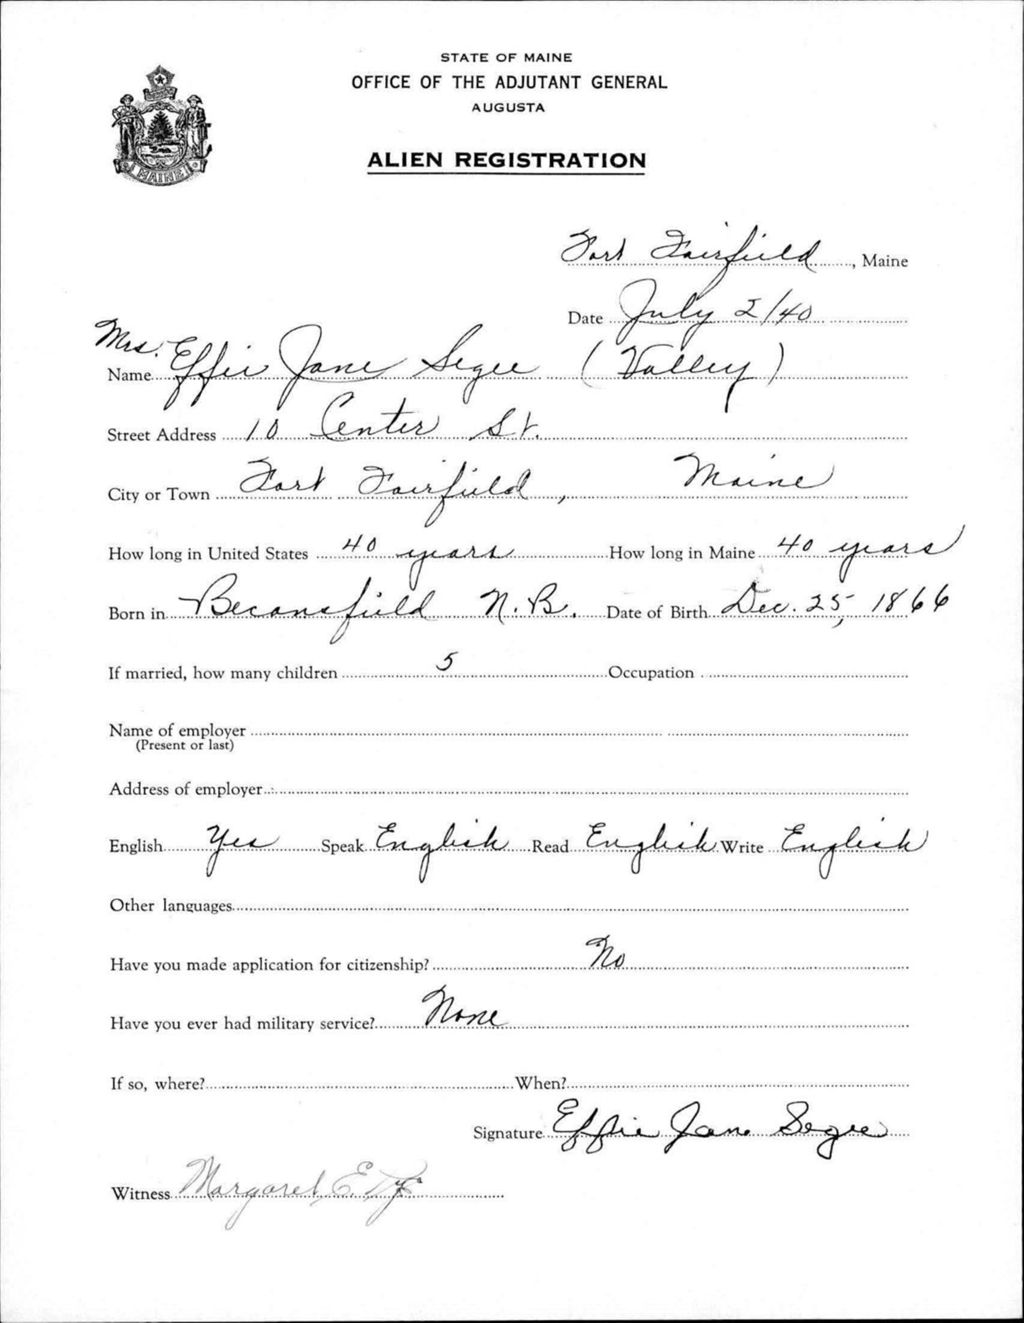 STATE OF MAINE
OFFICE OF THE ADJUTANT GENERAL
AUGUSTA
ALIEN REGISTRATION
MAINE
Fort Fairfield, Maine
Date July 2/40
Name Mrs. Effie Jane Segee (Valley)
Street Address 10 Center St.
City or Town Fort Fairfield, Maine
How long in United States 40 years How long in Maine 40 years
Born in Beconsfield N.B. Date of Birth Dec. 25, 1866
If married, how many children 5 Occupation
Name of employer
(Present or last)
Address of employer
English Yes Speak English Read English Write English
Other languages
Have you made application for citizenship? No
Have you ever had military service? None
If so, where? When?
Signature Effie Jane Segee
Witness Margaret E.